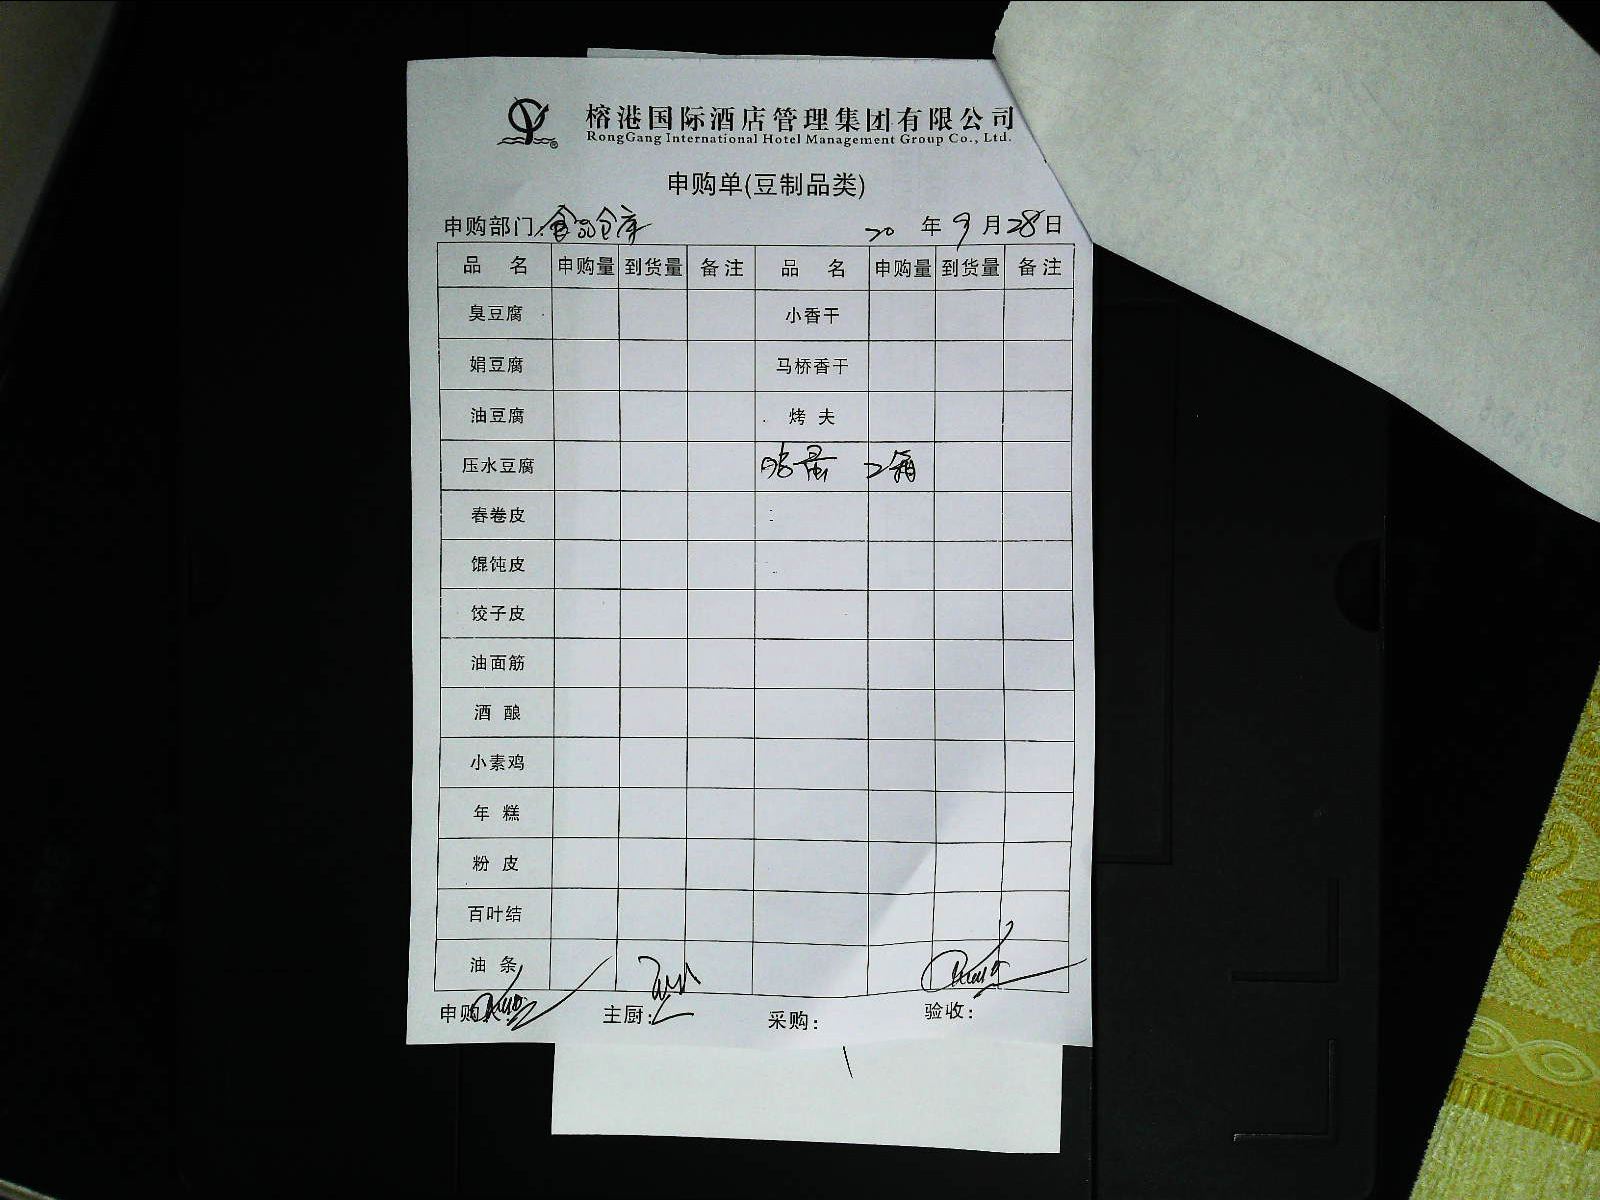 榕港国际酒店管理集团有限公司
RongGang International Hotel Management Group Co., Ltd.
申购单(豆制品类)
申购部门:食品仓库 20 年 9 月 28 日
品 名 申购量 到货量 备注 品 名 申购量 到货量 备注
臭豆腐 小香干
娟豆腐 马桥香干
油豆腐 烤夫
压水豆腐 2箱
春卷皮
馄饨皮
饺子皮
油面筋
酒酿
小素鸡
年糕
粉皮
百叶结
油条
申购 主厨: 采购: 验收: